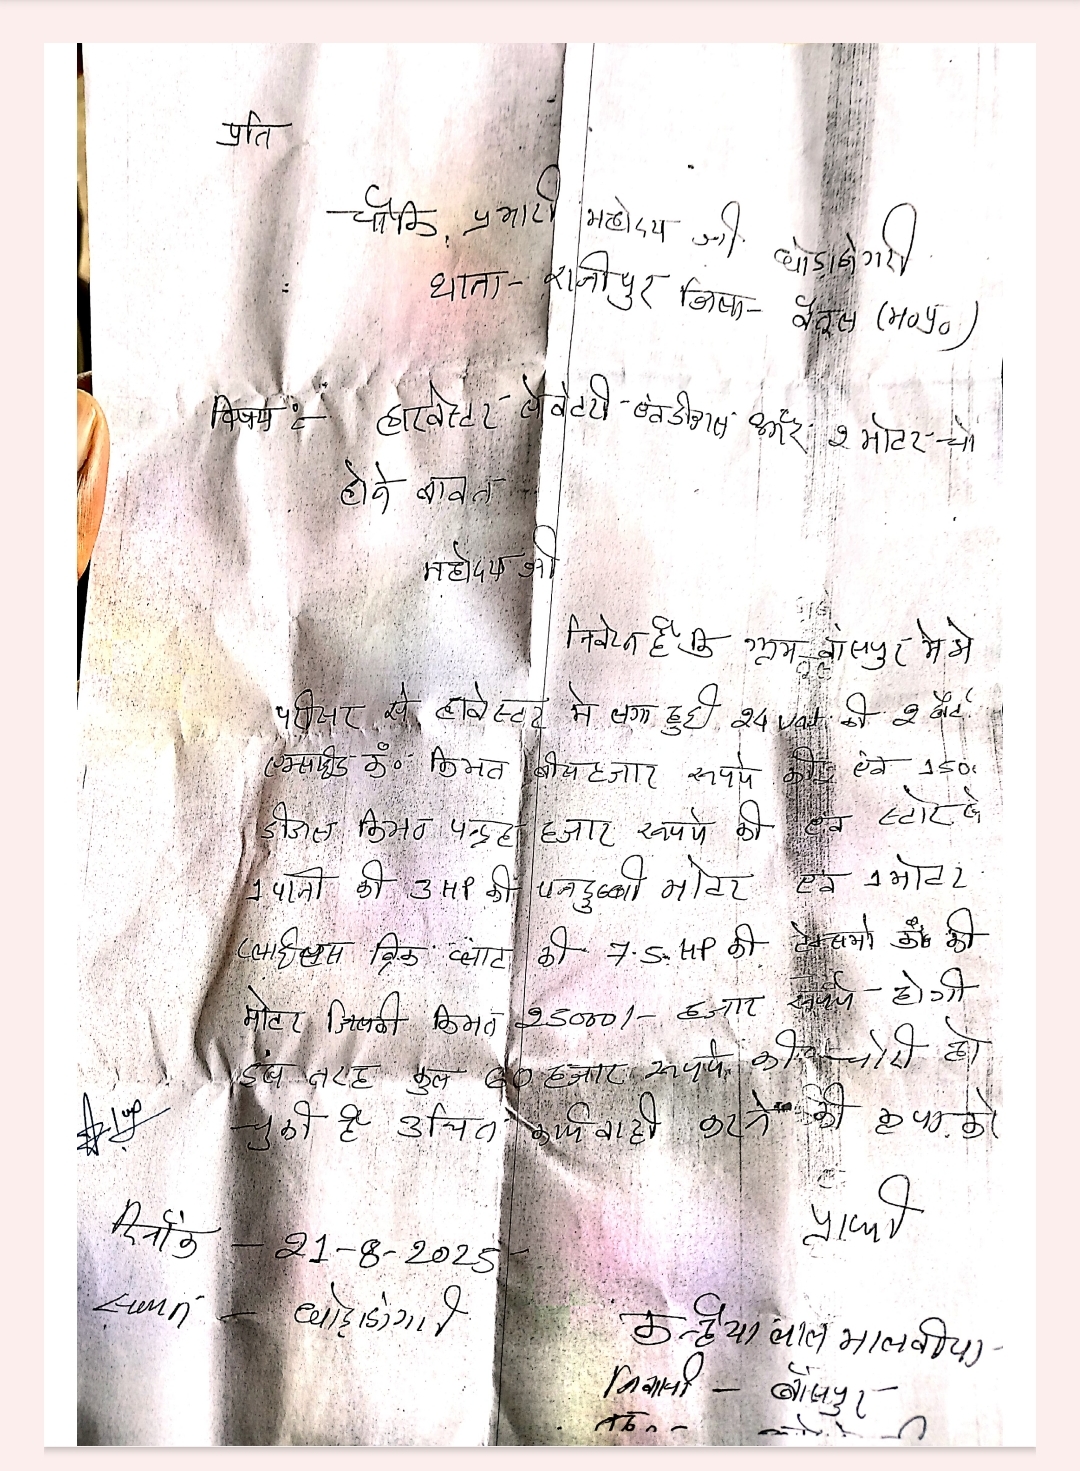 प्रति
चौकि प्रभारी महोदय जी घोडाडोगरी
थाना- रानीपुर जिला- बैतूल (म०प्र०)
विषय :- हारवेस्टर बेटरी डीजल और 2 मोटर चो
होने बावत
महोदय जी
निवेदन है कि ग्राम बांसपुर मे मे
परीसर से हावेस्टर मे लगा हुयी 24 की 2
कं० किमत बीस हजार रूपये की एंव 150
डीजल किमत पन्द्रह हजार रूपये की एंव स्टोर से
1 पानी की 3 HP की पनडुब्बी मोटर एंव 1 मोटर
ब्रिक प्लांट की 7.5 HP की टेक्समो कं० की
मोटर जिसकी किमत 25000/- हजार रूपये होगी
इस तरह कुल 60 हजार रूपये की चोरी हो
चुकी है उचित कार्यवाही करने की कृपा को
प्रार्थी
दिनाँक - 21-8-2025
स्थान - घोडाडोगरी
कन्हैया लाल मालवीया
निवासी - बाँसपुर